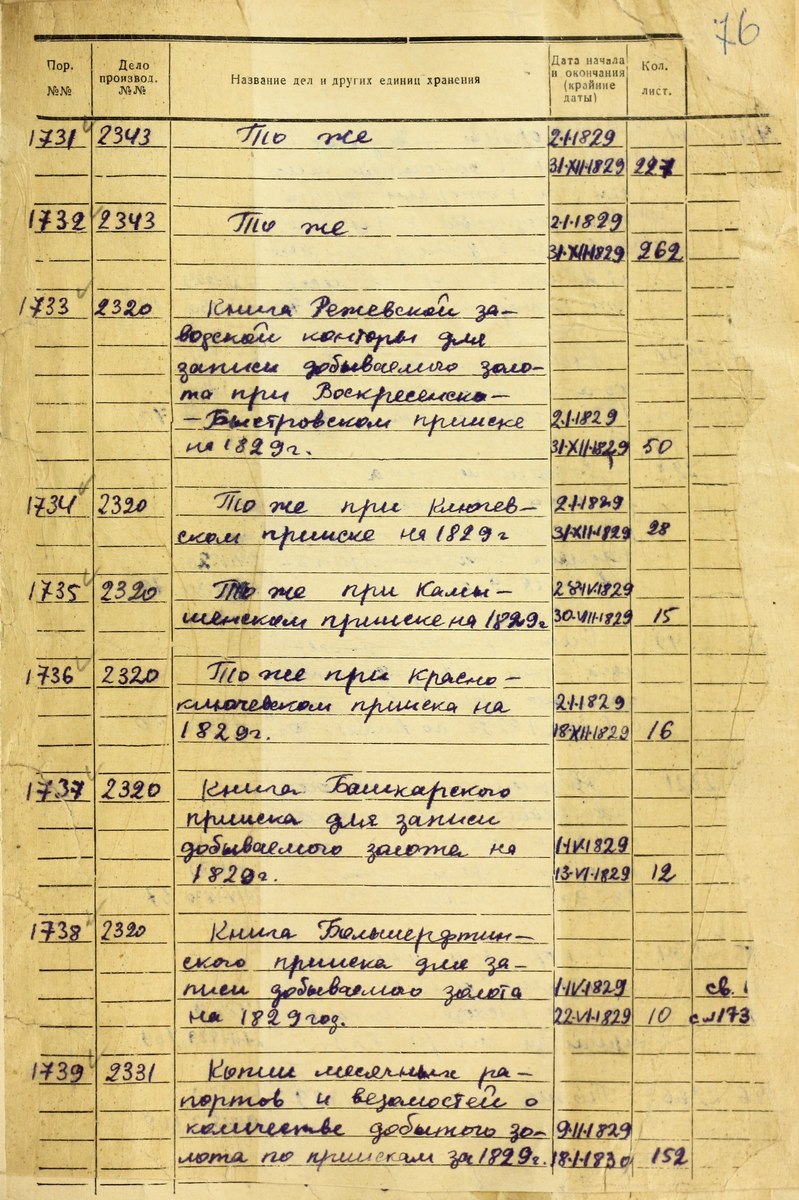 76
Пор. №№
Дело производ. №№
Название дел и других единиц хранения
Дата начала и окончания (крайние даты)
Кол. лист.
1731 2343 То же 2·I·1829
31·XII·1829 227
1732 2343 То же 2·I·1829
31·XII·1829 262
1733 2320 Книга Режевской за-
водской конторы для
записи добываемого золо-
та при Воскресенско-
-Быстровском прииске 2·I·1829
на 1829г. 31·XII·1829 50
1734 2320 То же при Ключев- 2·I·1829
ском прииске на 1829г 31·XII·1829 28
1735 2320 То же при Камы-
шенском прииске на 1829г 30·VII·1829 15
1736 2320 То же при Красно-
ключевском прииска на 2·I·1829
1829г. 18·XII·1829 16
1737 2320 Книга Башкарского
прииска для записи
добываемого золота на 1·IV·1829
1829г. 13·VI·1829 12
1738 2320 Книга Большерфтин-
ского прииска для за-
писи добываемого золота 1·IV·1829 св.
на 1829 год. 22·VI·1829 10 см173
1739 2331 Копии месячных ра-
портов и ведомостей о
количестве добытого зо- 9·II·1829
лота по приискам за 1829г. 18·I·1830 152